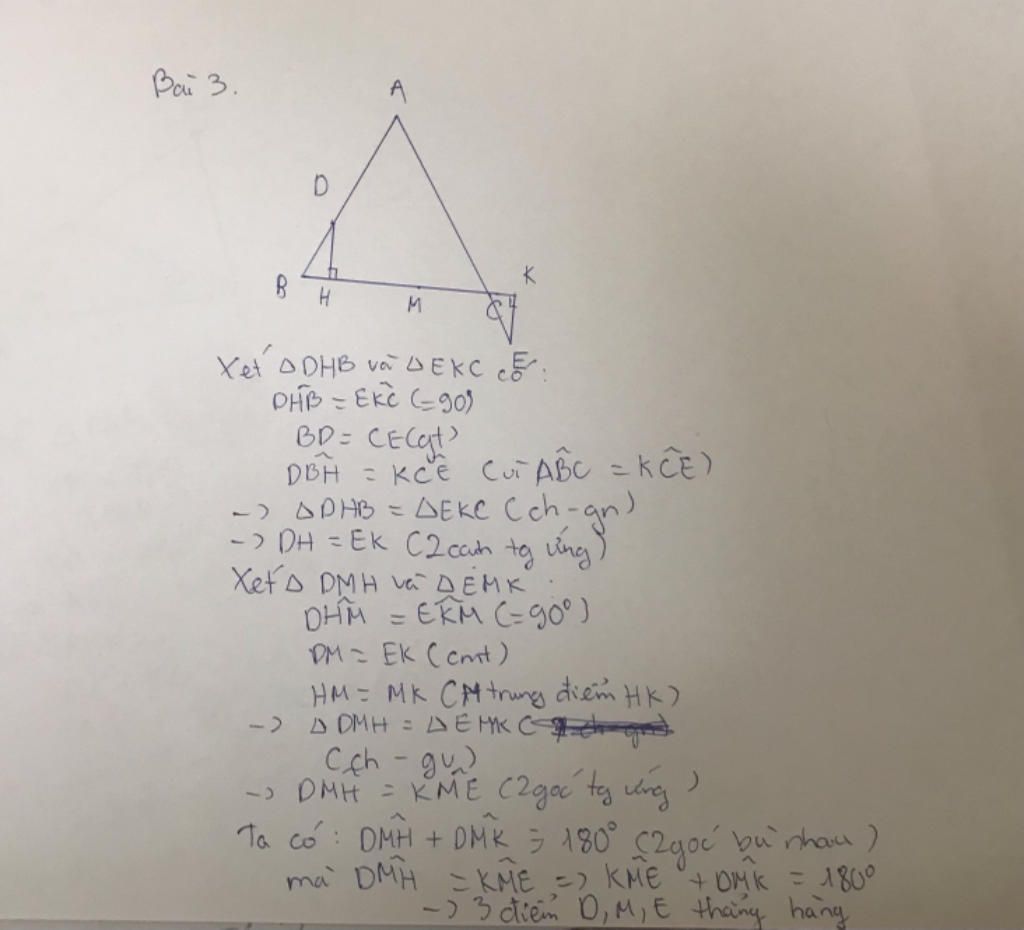 Bài 3.
A
D
K
B
H
M
C
E
Xét ΔDHB và ΔEKC có:
DĤB = EK̂C (=90)
BD = CE (gt)
DB̂H = KĈE (vì AB̂C = KĈE)
-> ΔDHB = ΔEKC (ch-gn)
-> DH = EK (2 cạnh tg ứng)
Xét Δ DMH và ΔEMK :
DĤM = EK̂M (=90°)
DM = EK (cmt)
HM = MK (M trung điểm HK)
-> Δ DMH = Δ EMK (
(ch - gv)
-> DM̂H = KM̂E (2 góc tg ứng)
Ta có: DM̂H + DM̂K = 180° (2 góc bù nhau)
mà DM̂H = KM̂E => KM̂E + DM̂K = 180°
-> 3 điểm D, M, E thẳng hàng